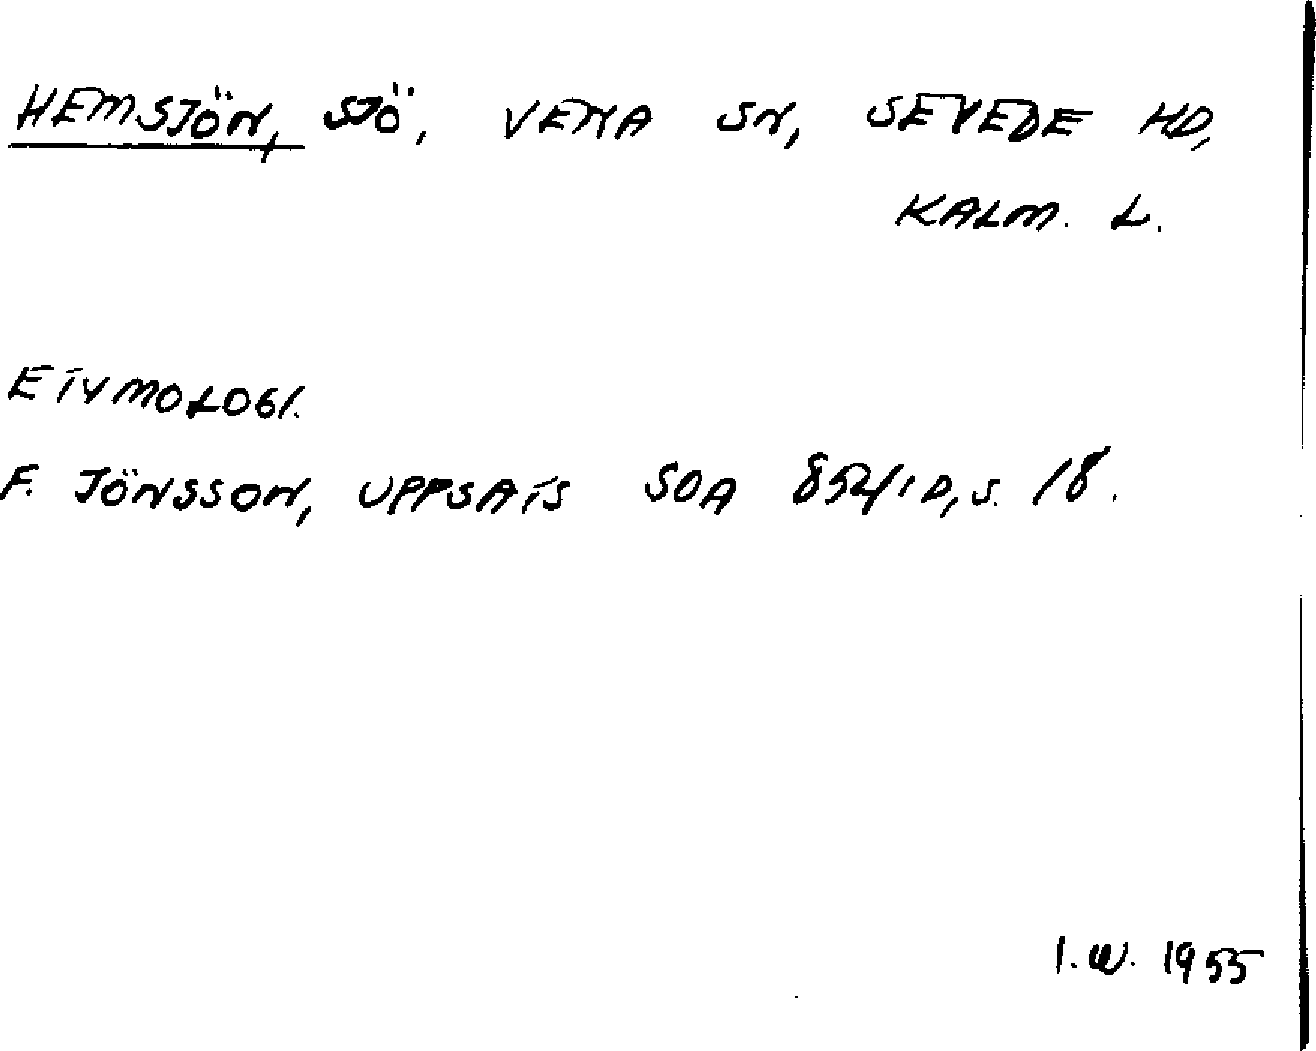 HEMSJÖN, SJÖ, VENA SN, SEVEDE HD,
KALM. L.
ETYMOLOGI.
F. JÖNSSON, UPPSATS SOA 852/1D, S. 18.
I.W. 1955